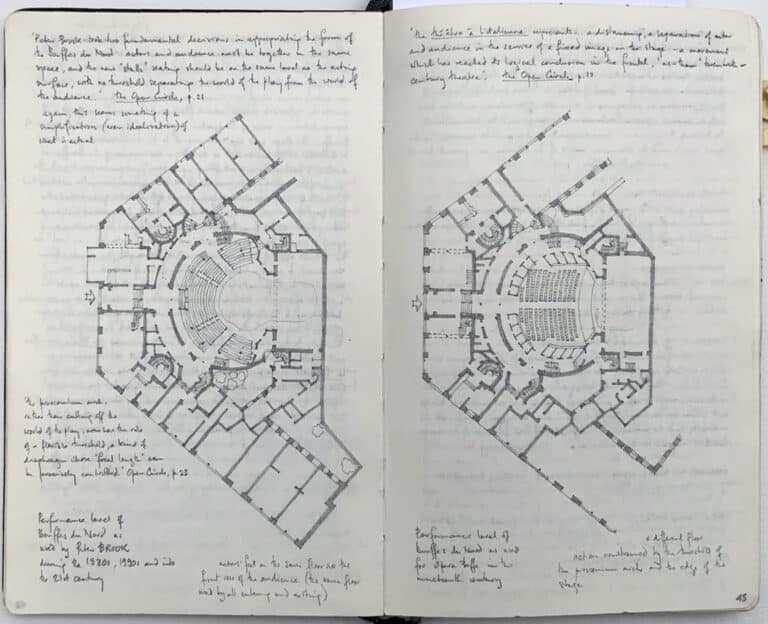 'Peter Brook took two fundamental decisions in appropriating the form of
the Bouffes du Nord: actors and audience must be together in the same
space, and the new 'stalls' seating should be on the same level as the acting
surface, with no threshold separating the world of the play from the world of
the audience.' The Open Circle, p.21
again, this seems something of a
simplification (even idealisation) of
what is actual
'The proscenium arch,
rather than cutting off the
world of the play, now has the role
of a flexible threshold, a kind of
diaphragm whose 'focal length' can
be precisely controlled.' Open Circle, p.23
Performance level of
Bouffes du Nord as
used by Peter BROOK
during the 1980s, 1990s and into
the 21st century
actors' feet on the same floor as the
front row of the audience (the same floor
used by all entering and exiting)
'The théâtre à l'italienne represents a distancing, a separation of actor
and audience in the service of a fixed image on the stage – a movement
which has reached its logical conclusion in the frontal, twentieth-
century theatre.' The Open Circle, p.
Performance level of
Bouffes du Nord as used
for Opera Bouffe in the
nineteenth century
a different floor
action constrained by the threshold of
the proscenium arch and the edge of the
stage
45